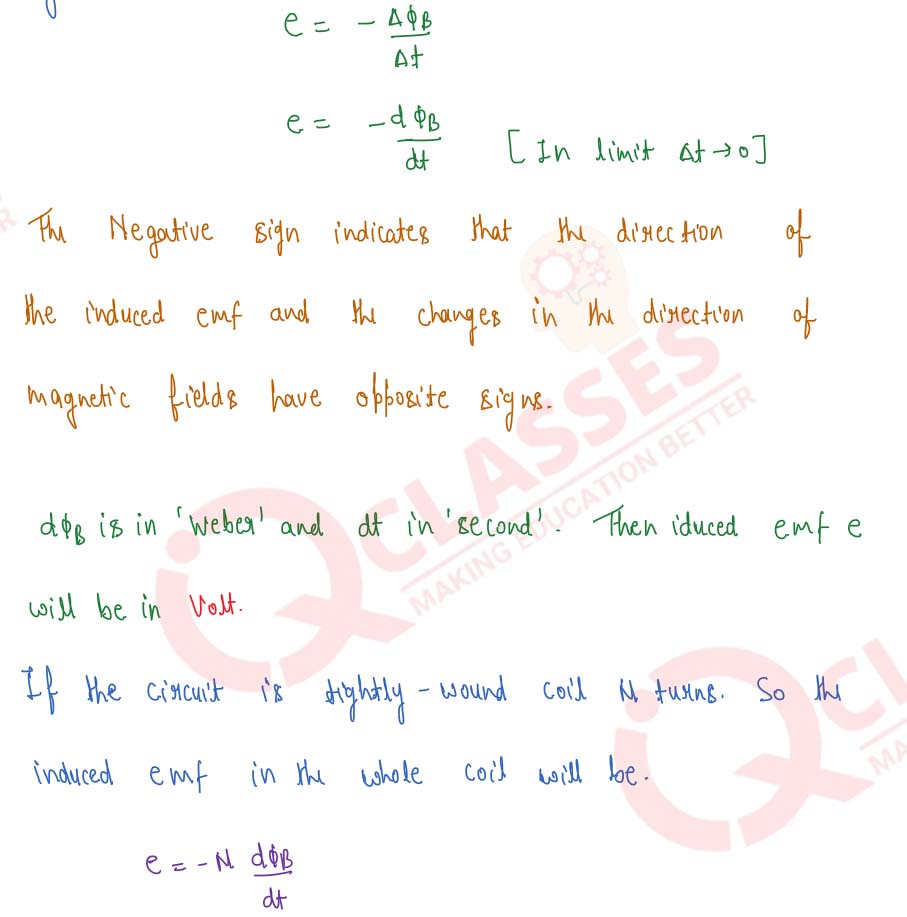 e = - ΔΦB/Δt
e = - dΦB/dt [In limit Δt→0]
The Negative sign indicates that the direction of
the induced emf and the changes in the direction of
magnetic fields have opposite signs.
dΦB is in 'Weber' and dt in 'second'. Then iduced emf e
will be in Volt.
If the circuit is tightly-wound coil N turns. So the
induced emf in the whole coil will be.
e = -N dΦB/dt
CLASSES
MAKING EDUCATION BETTER
CL
MA